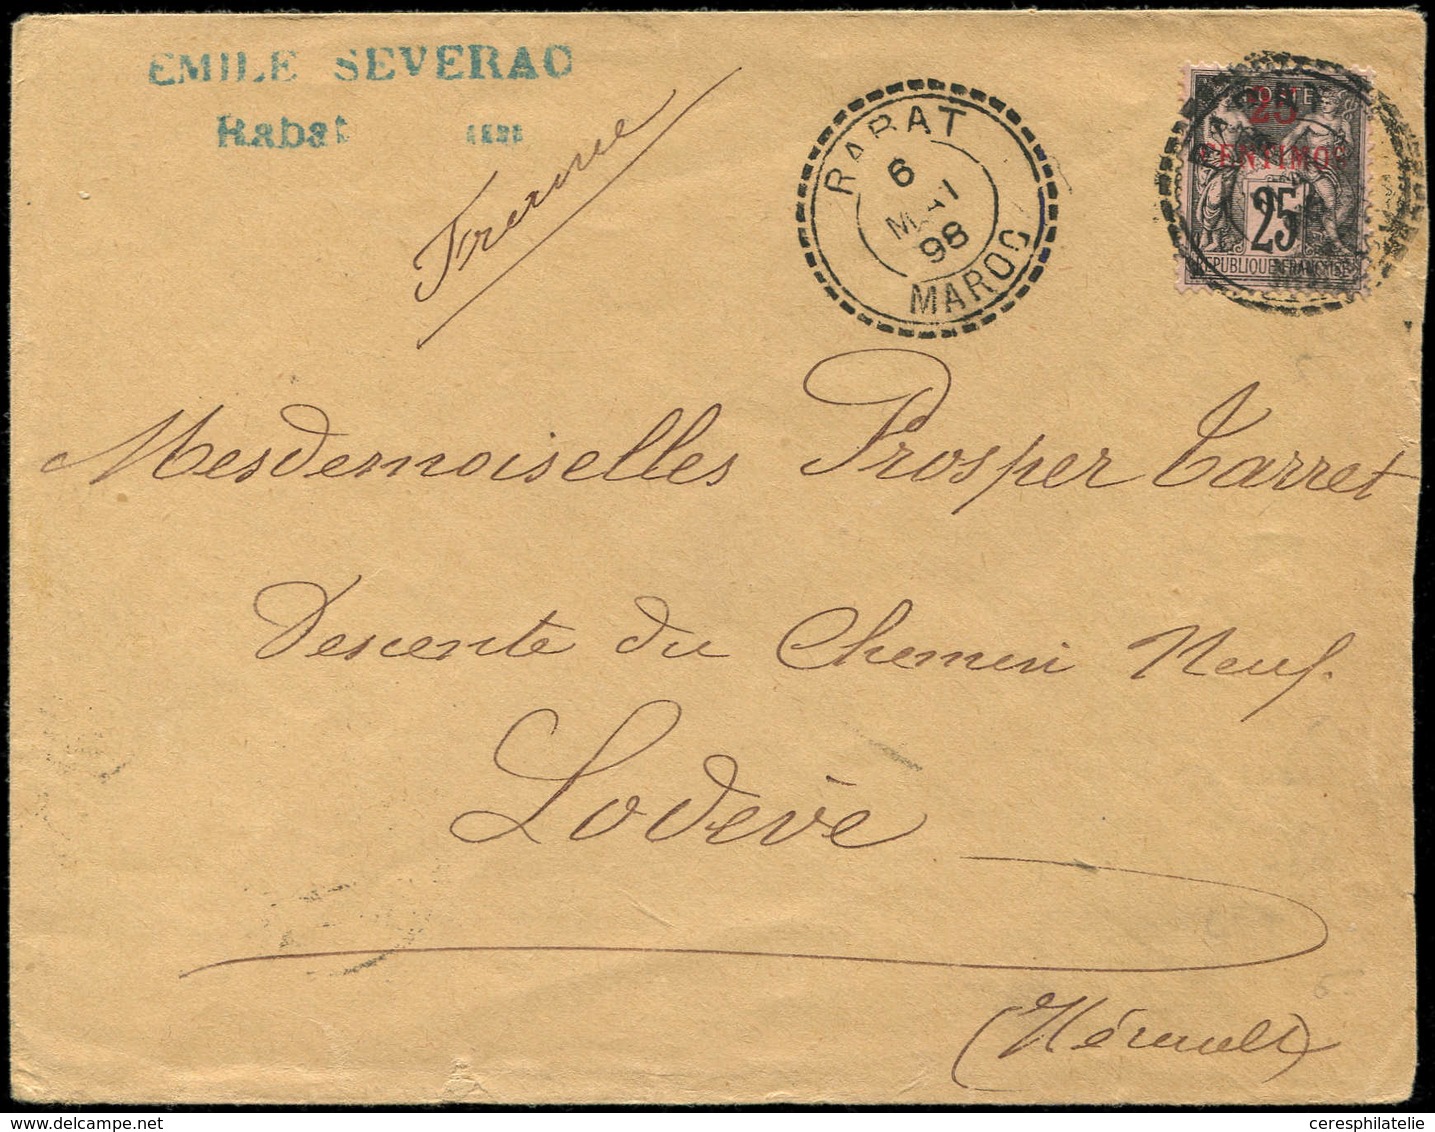 EMILE SEVERAC
Rabat
France
RABAT
6
MAI
98
MAROC
POSTE
25
CENTIMOS
25
REPUBLIQUE FRANCAISE
Mesdemoiselles Prosper Tarret
Descente du Chemin Neuf.
Lodève
(Hérault)
ceresphilatelie
delcampe.net